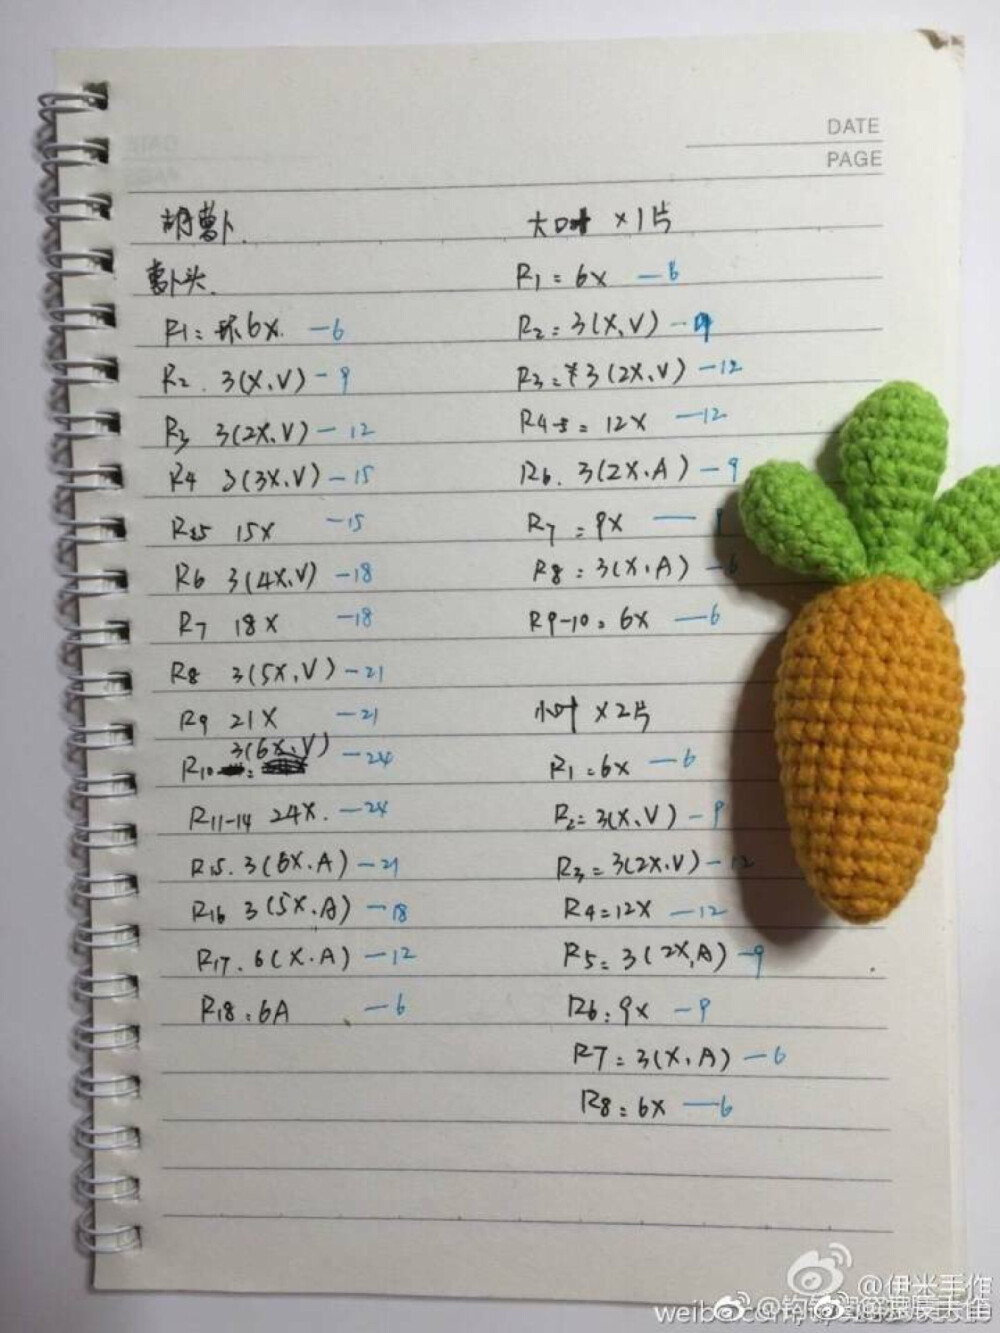 DATE
PAGE
胡萝卜.
萝卜头.
R1: 环6X. —6
R2. 3(X,V) — 9
R3 3(2X.V) — 12
R4 3(3X.V) — 15
R5 15X — 15
R6 3(4X.V) — 18
R7 18X — 18
R8 3(5X.V) — 21
R9 21X — 21
R10 3(6X.V) — 24
R11-14 24X. — 24
R15. 3(6X.A) — 21
R16 3(5X.A) — 18
R17. 6(X.A) — 12
R18: 6A — 6
大叶 ×1片
R1 = 6X — 6
R2 = 3(X,V) — 9
R3 = 3(2X,V) — 12
R4-5 = 12X — 12
R6. 3(2X.A) — 9
R7 = 9X — 9
R8 = 3(X,A) — 6
R9-10: 6X — 6
小叶 ×2片
R1 = 6X — 6
R2 = 3(X,V) — 9
R3 = 3(2X.V) — 12
R4 = 12X — 12
R5 = 3(2X,A) — 9
R6: 9X — 9
R7 = 3(X,A) — 6
R8 = 6X — 6
@伊米手作